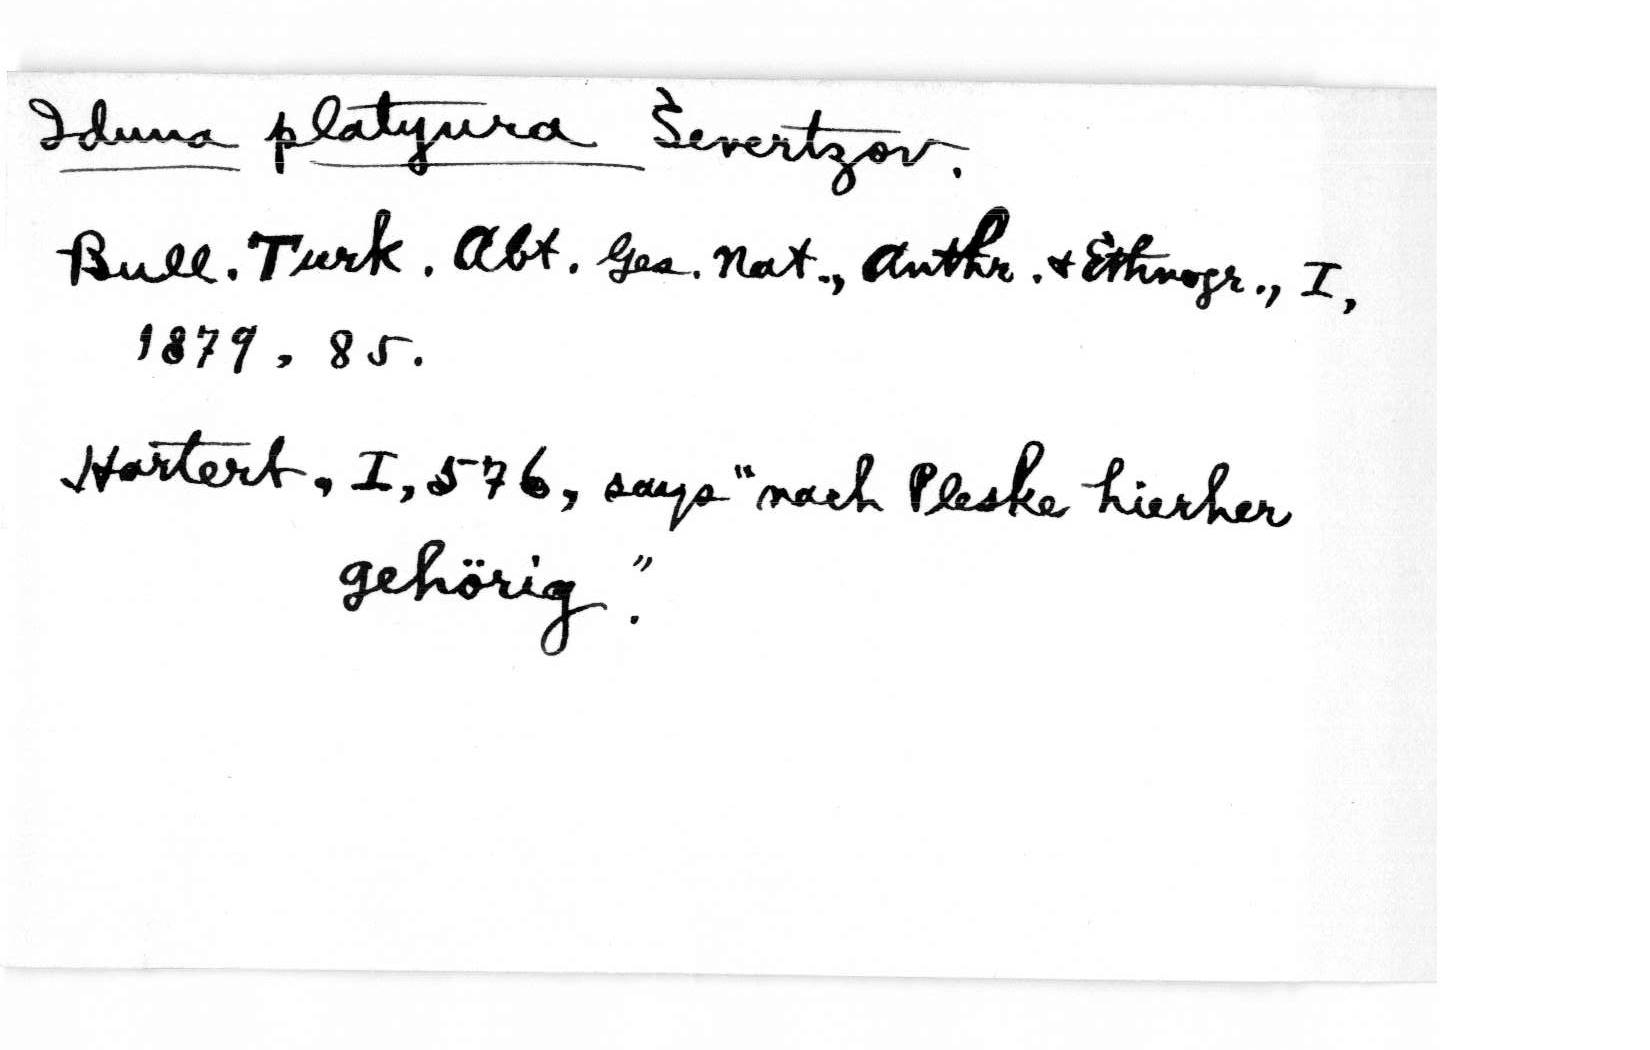 Iduna platyura Severtzov.
Bull. Turk. Abt. Ges. Nat., Anthr. & Ethnogr., I,
1879, 85.
Hartert, I, 576, says "nach Pleske hierher
gehörig".